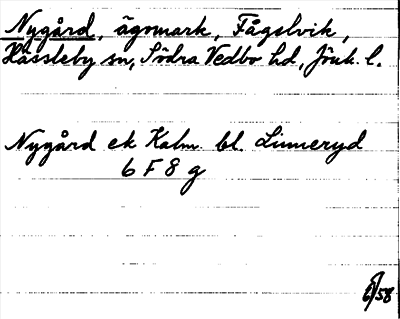 Nygård, ägomark, Fågelvik,
Hässleby sn, Södra Vedbo hd, Jönk. l.
Nygård ek Kalm. bl. Linneryd
6 F 8 g
/58